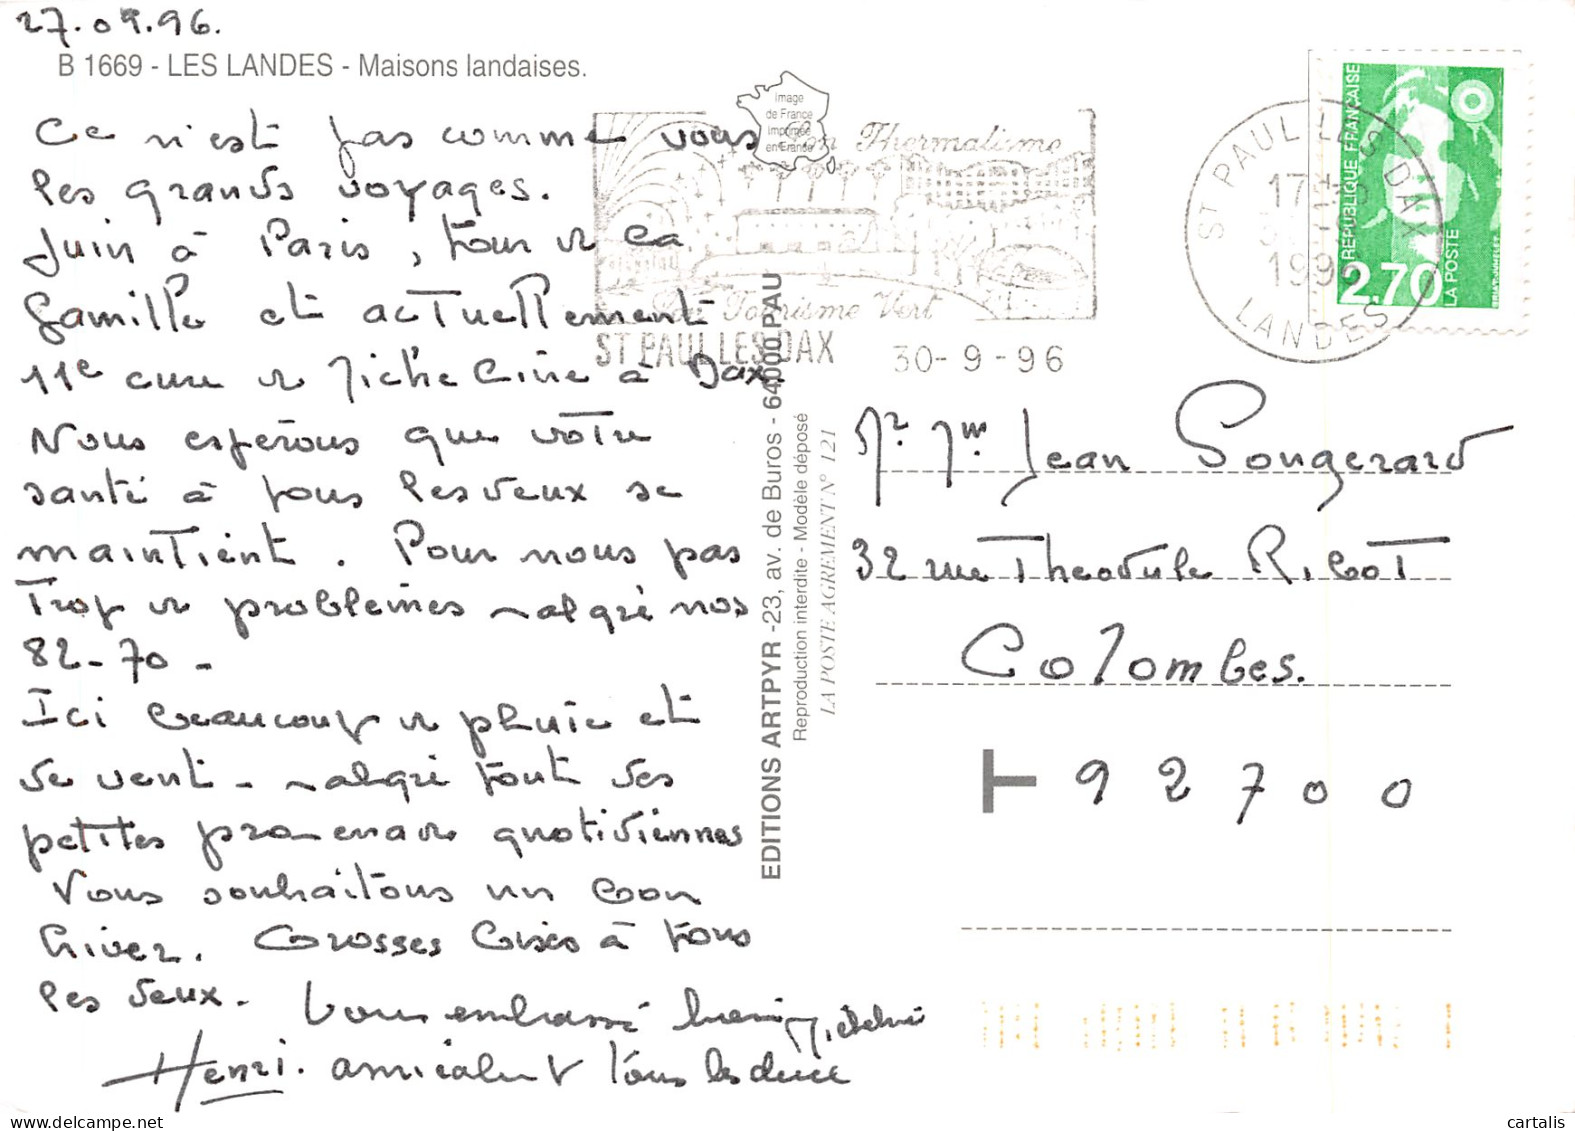 27.09.96.
B 1669 - LES LANDES - Maisons landaises.
Ce n'est pas comme vous
les grands voyages.
Juin à Paris, pour de la
famille et actuellement
11e cure de Michèle à Dax.
Nous espérons que votre
santé à tous les deux se
maintient. Pour nous pas
Trop de problèmes malgré nos
82-70-
Ici beaucoup de pluie et
de vent - malgré tout des
petites promenades quotidiennes
Vous souhaitons un bon
hiver. Grosses bises à tous
les deux. Vous embrasse bien Michèle
Henri. amicalement Tous les deux
image
de France
imprimée
en France
Bon Thermalisme
Bon Tourisme Vert
ST PAUL LES DAX
30-9-96
ST PAUL LES DAX
17H
1996
LANDES
REPUBLIQUE FRANÇAISE
2,70
LA POSTE
EDITIONS ARTPYR -23, av. de Buros - 64000 PAU
Reproduction interdite - Modèle déposé
LA POSTE AGREMENT N° 121
Mr. Mme. Jean Pongerard
32 rue Theodule Ribot
Colombes.
T 92700
cartalis